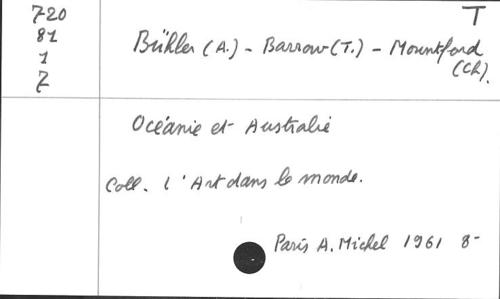 720
81
1
7
T
Bühler (A.) - Barrow (T.) - Mountford
(Ch).
Océanie et Australie
Coll. l'Art dans le monde.
Paris A. Michel 1961 8-